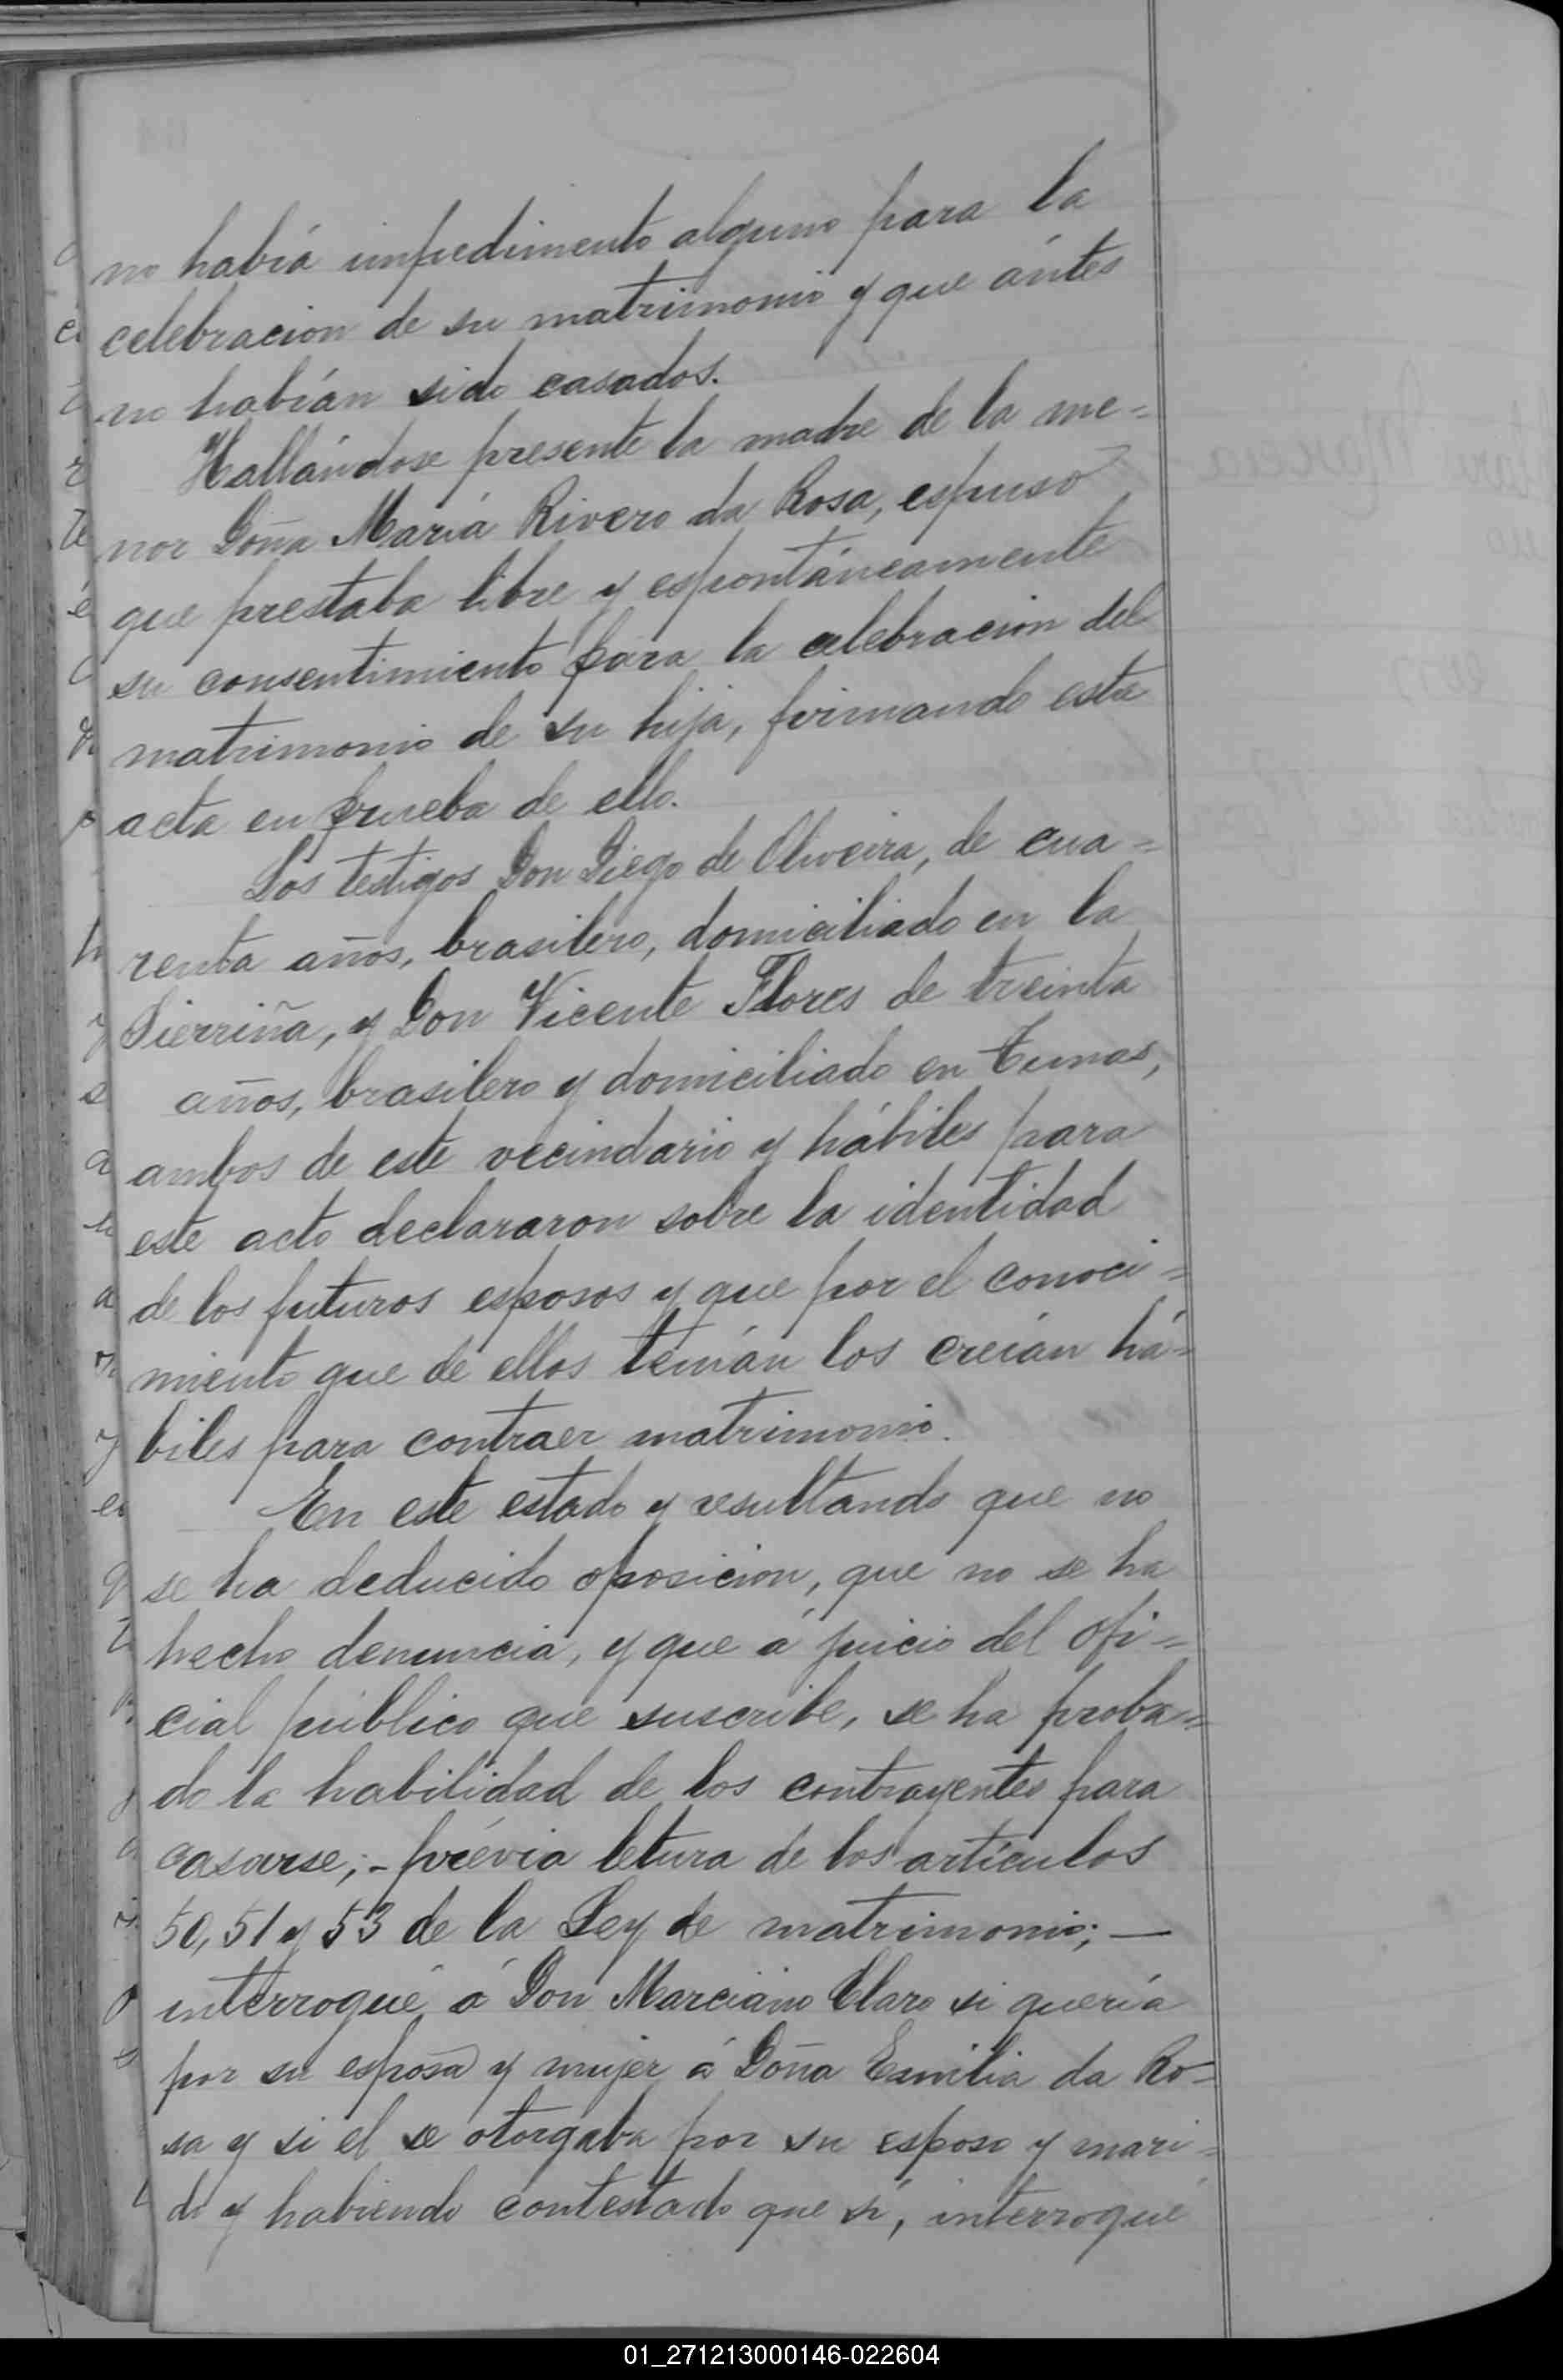 no había impedimento alguno para la
celebracion de su matrimonio y que ántes
no habían sido casados.
Hallándose presente la madre de la me=
nor Doña María Rivero da Rosa, espuso
que prestaba libre y espontáneamente
su consentimiento para la celebracion del
matrimonio de su hija, firmando esta
acta en prueba de ello.
Los testigos Don Diego de Oliveira, de cua=
renta años, brasilero, domiciliado en la
Sierriña, y Don Vicente Flores de treinta
años, brasilero y domiciliado en Tunas,
ambos de este vecindario y hábiles para
este acto declararon sobre la identidad
de los futuros esposos y que por el conoci=
miento que de ellos tenían los creían há=
biles para contraer matrimonio.
En este estado y resultando que no
se ha deducido oposicion, que no se ha
hecho denuncia, y que á juicio del ofi=
cial público que suscribe, se ha proba=
do la habilidad de los contrayentes para
casarse;- prévia letura de los artículos
50, 51 y 53 de la Ley de matrimonio; —
interrogué á Don Marciano Claro si quería
por su esposa y mujer á Doña Emilia da Ro=
sa y si el se otorgaba por su esposo y mari=
do y habiendo contestado que sí, interrogué
01_271213000146-022604